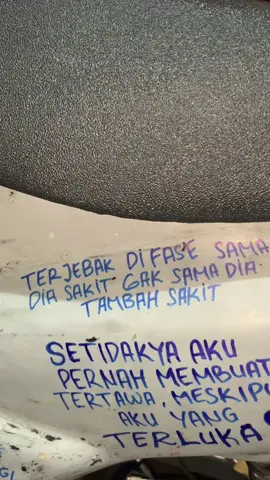 TERJEBAK DI FASE SAMA
DIA SAKIT GAK SAMA DIA
TAMBAH SAKIT
SETIDAKYA AKU
PERNAH MEMBUAT
TERTAWA, MESKIPU
AKU YANG
TERLUKA
GI